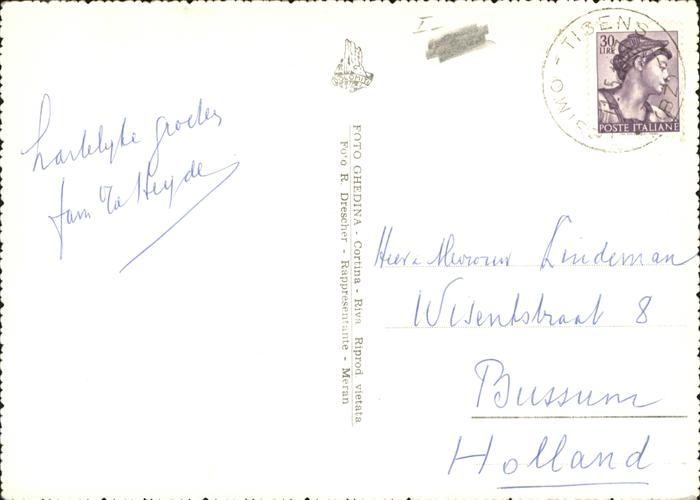 I-
30
LIRE
POSTE ITALIANE
TISENS
TESIMO
hartelijke groeten
fam
FOTO GHEDINA - Cortina - Riva Riprod. vietata
Foto R. Drescher - Rappresentante - Meran
Heer & Mevrouw Lindeman
Wisentstraat 8
Bussum
Holland